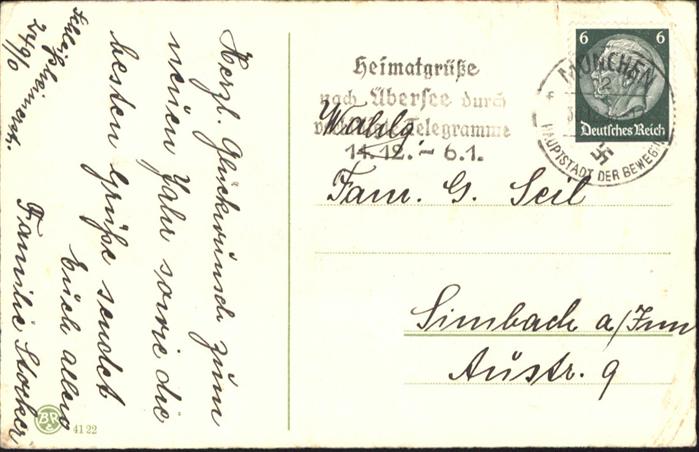 Herzl. Glückwunsch zum
neuen Jahr sowie die
besten Grüße sendet
Euch allen
Familie Stocker
24/0
Heimatgrüße
nach Übersee durch
Telegramme
14.12.-6.1.
6 6
Deutsches Reich
MÜNCHEN
2
HAUPTSTADT DER BEWEG
Wohlg.
Fam. G. Seil
Simbach a/Inn
Austr. 9
BR
4122